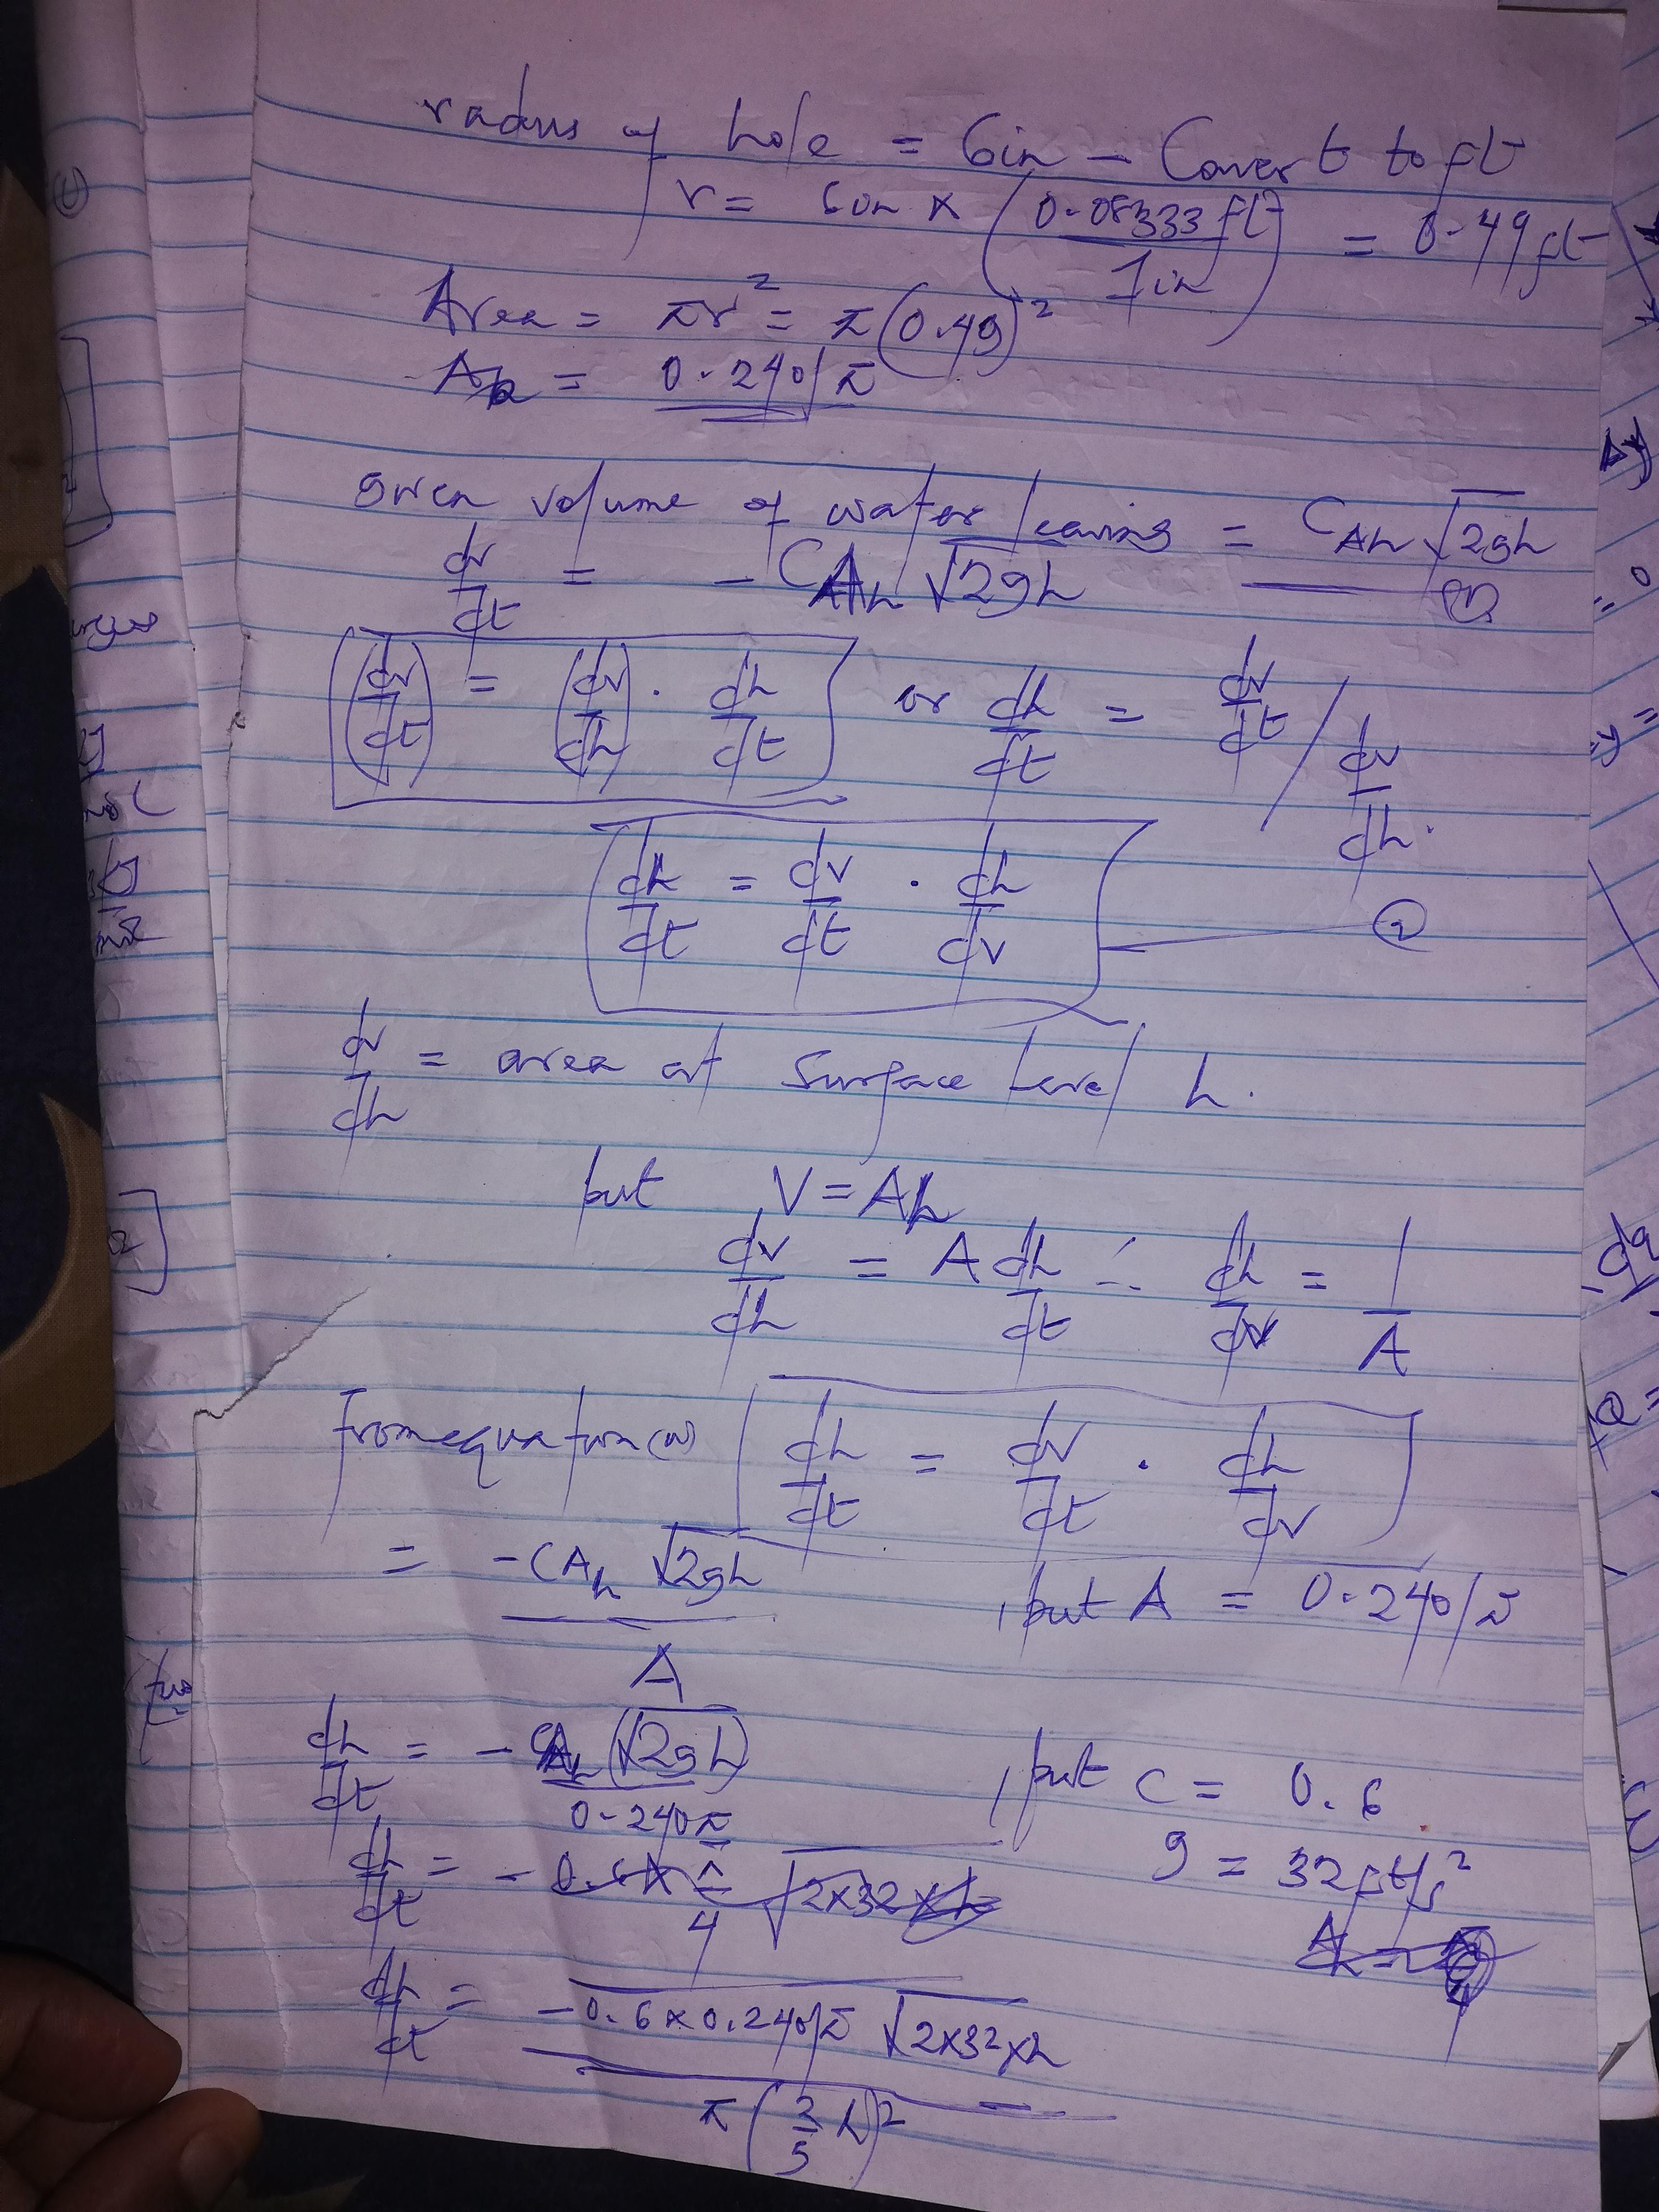 radius of hole = 6in - Convert to ft
r = 6in x (0.08333ft / 1in) = 0.49ft
Area = πr² = π(0.49)²
Ah = 0.2401π
given volume of water leaving = CAh √2gh
dv/dt = - CAh √2gh
(dv/dt) = (dv/dh) . dh/dt or dh/dt = dv/dt / dv/dh.
dh/dt = dv/dt . dh/dv ②
dv/dh = area at surface level h.
but V = Ah
dv/dh = A dh/dt ∴ dh/dv = 1/A
from equation dh/dt = dv/dt . dh/dv
= -CAh √2gh / A , but A = 0.2401π
dh/dt = - CAh (√2gh) / 0.240π , but C = 0.6
g = 32ft/s²
dh/dt = - 0.6 x π/4 √2x32xh
dh/dt = -0.6x0.2401π √2x32xh / π(2/5 h)²